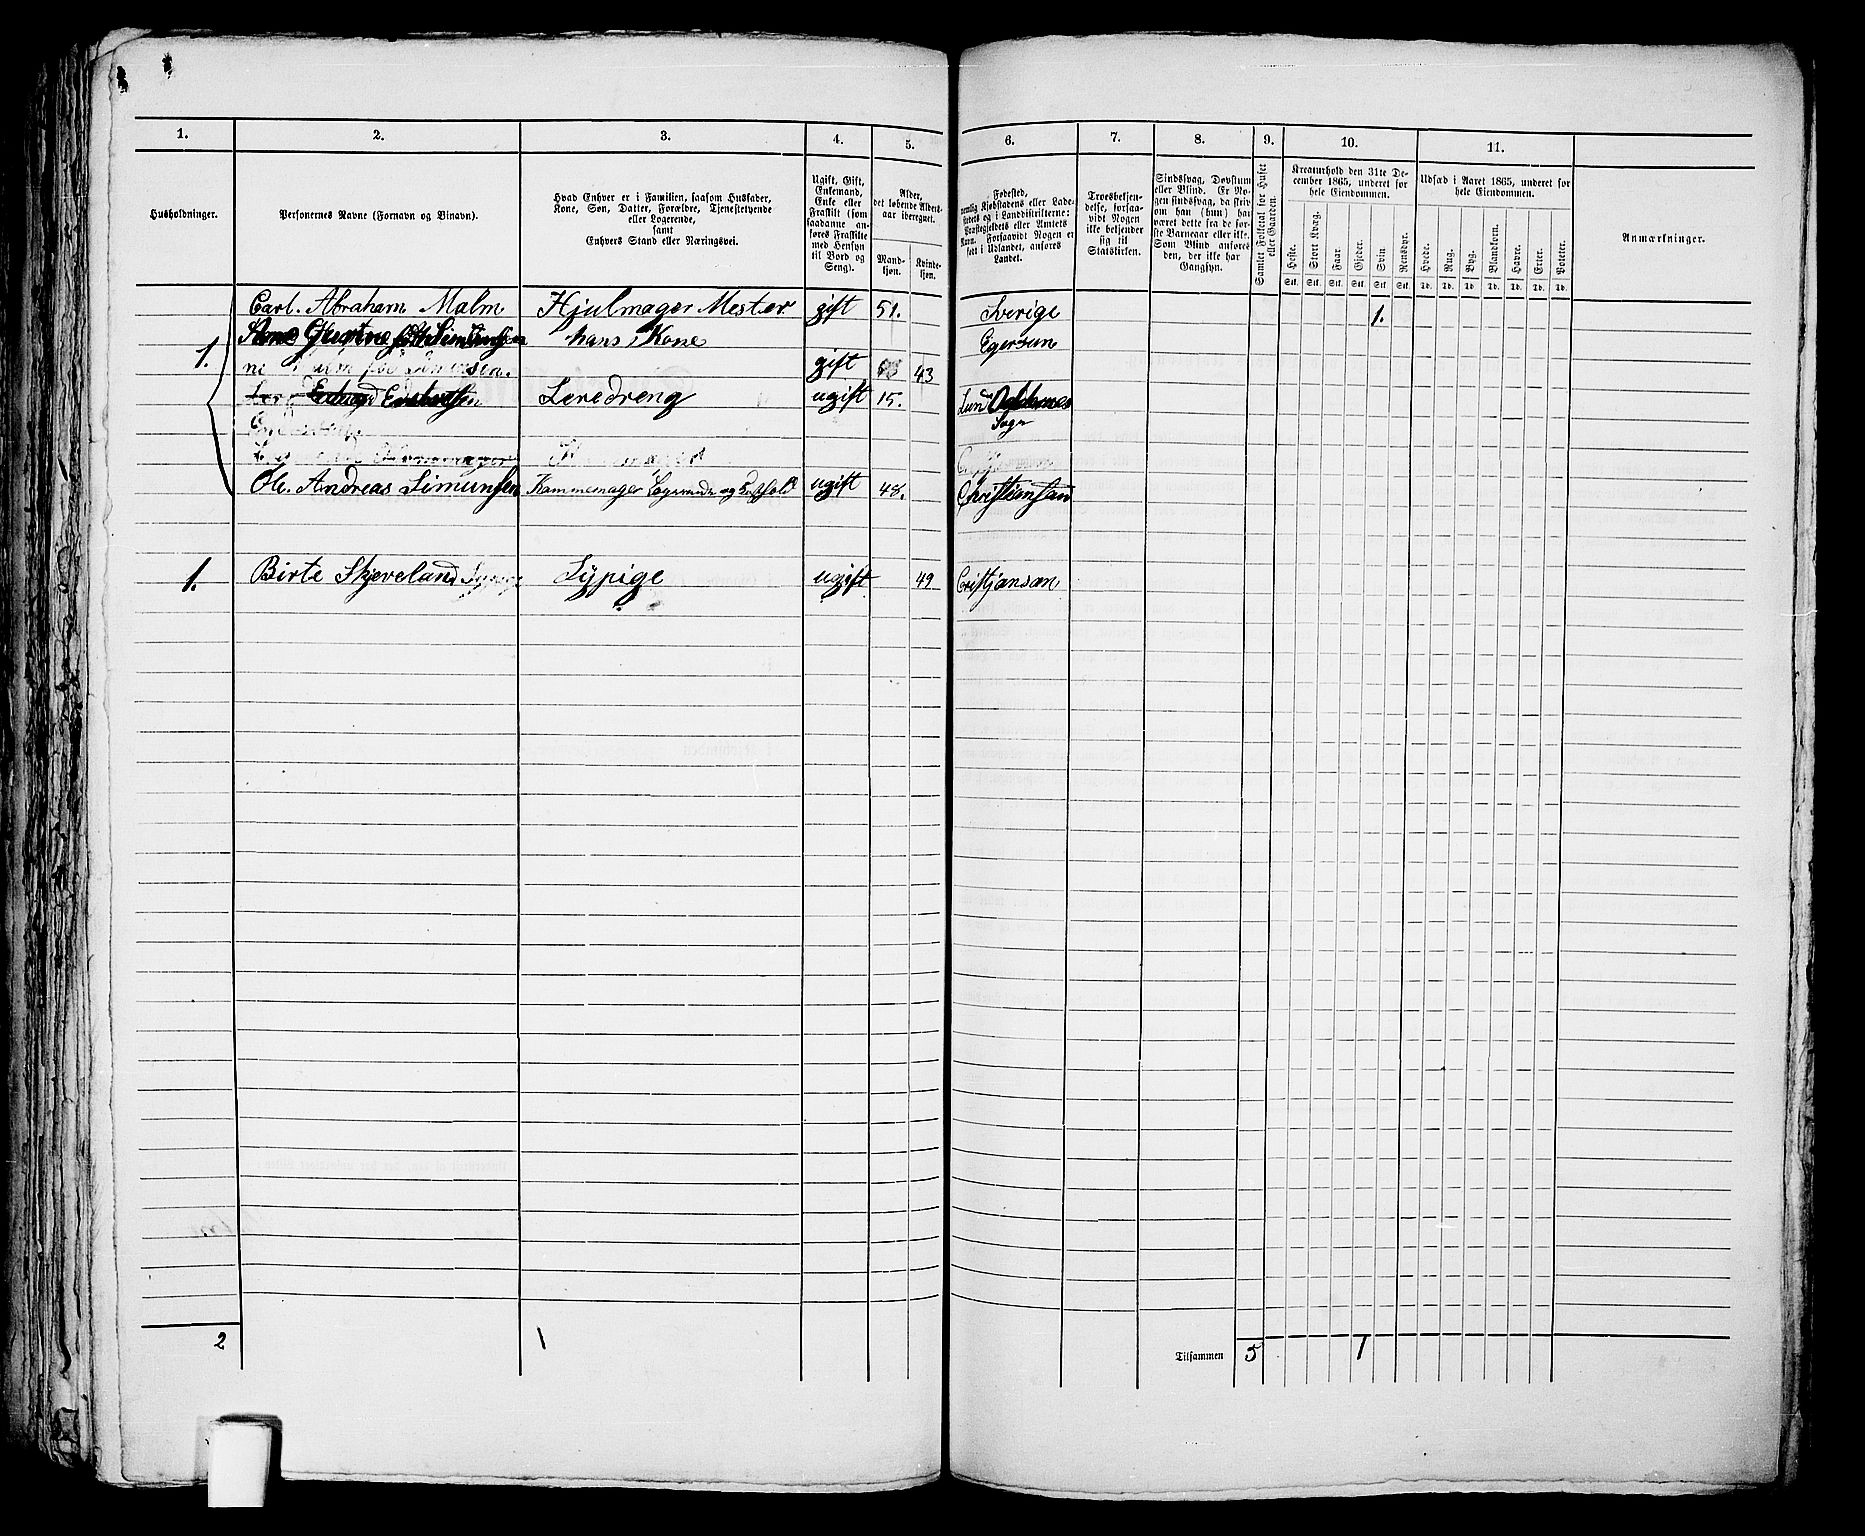 1. 2. 3. 4. 5. 6. 7. 8. 9. 10. 11.
Husholdninger.
Personernes Navne (Fornavn og Tilnavn).
Hvad Enhver er i Familien, saasom Husfader,
Kone, Søn, Datter, Forældre, Tjenestetyende
eller Logerende,
samt
Enhvers Stand eller Næringsvei.
Ugift, Gift,
Enkemand,
Enke eller
Fraskilt (som
saadanne an-
føres Fraskilte
med Hensyn
til Bord og
Seng).
Alder,
det løbende Alders-
aar iberegnet.
Mand-
kjøn.
Kvinde-
kjøn.
Fødested,
nemlig Kjøbstadens eller Lade-
stedets og i Landdistrikterne:
Præstegjeldets eller Amtets
Navn. Forsaavidt Nogen er
født i Udlandet, anføres
Landet.
Troesbekjen-
delse, forsaa-
vidt Nogen
ikke bekjender
sig til
Statskirken.
Sindssvag, Døvstum
eller Blind. Er No-
gen sindssvag, da skriv
om han (hun) har
været dette fra de før-
ste Barneaar eller ikke.
Som Blind anføres
den, der ikke har
Gangsyn.
Samlet Folketal for Huset
eller Gaarden.
Kreaturhold den 31te De-
cember 1865, underet for
hele Eiendommen.
Heste. Stort Kvæg. Faar. Gjeder. Svin. Rensdyr.
Stk. Stk. Stk. Stk. Stk. Stk.
Udsæd i Aaret 1865, underet for
hele Eiendommen.
Hvede. Rug. Byg. Blandkorn. Havre. Erter. Poteter.
Td. Td. Td. Td. Td. Td. Td.
Anmærkninger.
Carl. Abraham Malm Hjulmager Mester gift 51. Sverige 1.
hans Kone Egersun
1. gift 43
Leredreng ugift 15. Lun
Sogn
Ole. Andreas Simunsen Kammemager Logerende ugift 48. Christiansan
1. Birte Skjeveland Sypige ugift 49 Cristjansan
2 1 Tilsammen 5 1